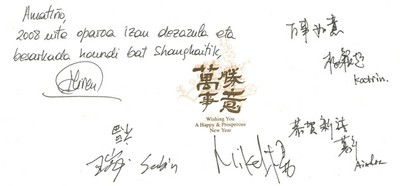 Amatiño,
2008 urte oparoa izan dezazula eta
besarkada haundi bat Shanghaitik,
萬事勝意
Wishing You
A Happy & Prosperous
New Year
万事如意
Katrin.
恭贺新禧
Ainhoa
Sabin
Mikel